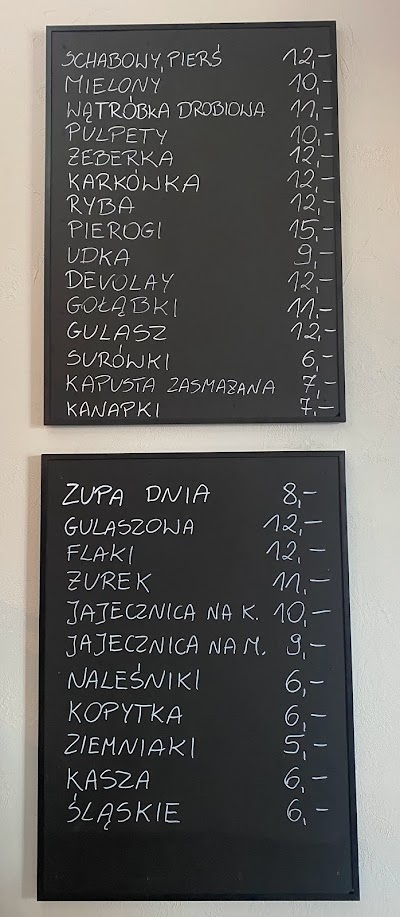 SCHABOWY, PIERŚ 12,-
MIELONY 10,-
WĄTRÓBKA DROBIOWA 11,-
PULPETY 10,-
ŻEBERKA 12,-
KARKÓWKA 12,-
RYBA 12,-
PIEROGI 15,-
UDKA 9,-
DEVOLAY 12,-
GOŁĄBKI 11,-
GULASZ 12,-
SURÓWKI 6,-
KAPUSTA ZASMAŻANA 7,-
KANAPKI 7,-
ZUPA DNIA 8,-
GULASZOWA 12,-
FLAKI 12,-
ŻUREK 11,-
JAJECZNICA NA K. 10,-
JAJECZNICA NA M. 9,-
NALEŚNIKI 6,-
KOPYTKA 6,-
ZIEMNIAKI 5,-
KASZA 6,-
ŚLĄSKIE 6,-